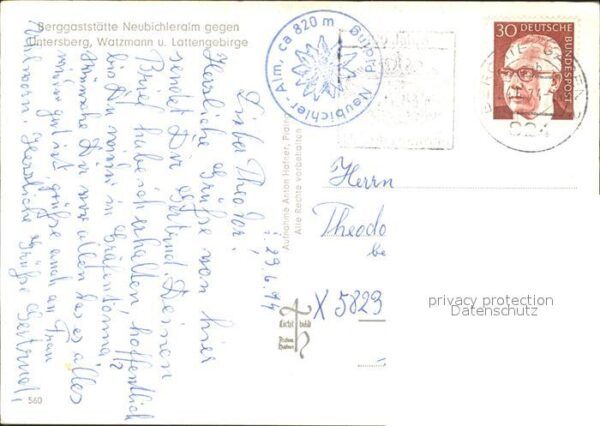 Berggaststätte Neubichleralm gegen
Untersberg, Watzmann u. Lattengebirge
Neubichler-Alm, ca 820 m
Piding
30
DEUTSCHE
BUNDESPOST
824
Lieber Theodor!
29.6.74
Herzliche Grüße von hier
sendet Dir Gertrud. Deinen
Brief habe ich erhalten hoffentlich
bis Du
in Gräfentonna?
wünsche Dir vor allen das es alles
gut ist grüße auch an Frau
Herzliche Grüße Gertrud!
Aufnahme Anton Hafner, Piding
Alle Rechte vorbehalten
Licht
bild
Anton
Hafner
Herrn
Theodo
be
X 5829
privacy protection
Datenschutz
560